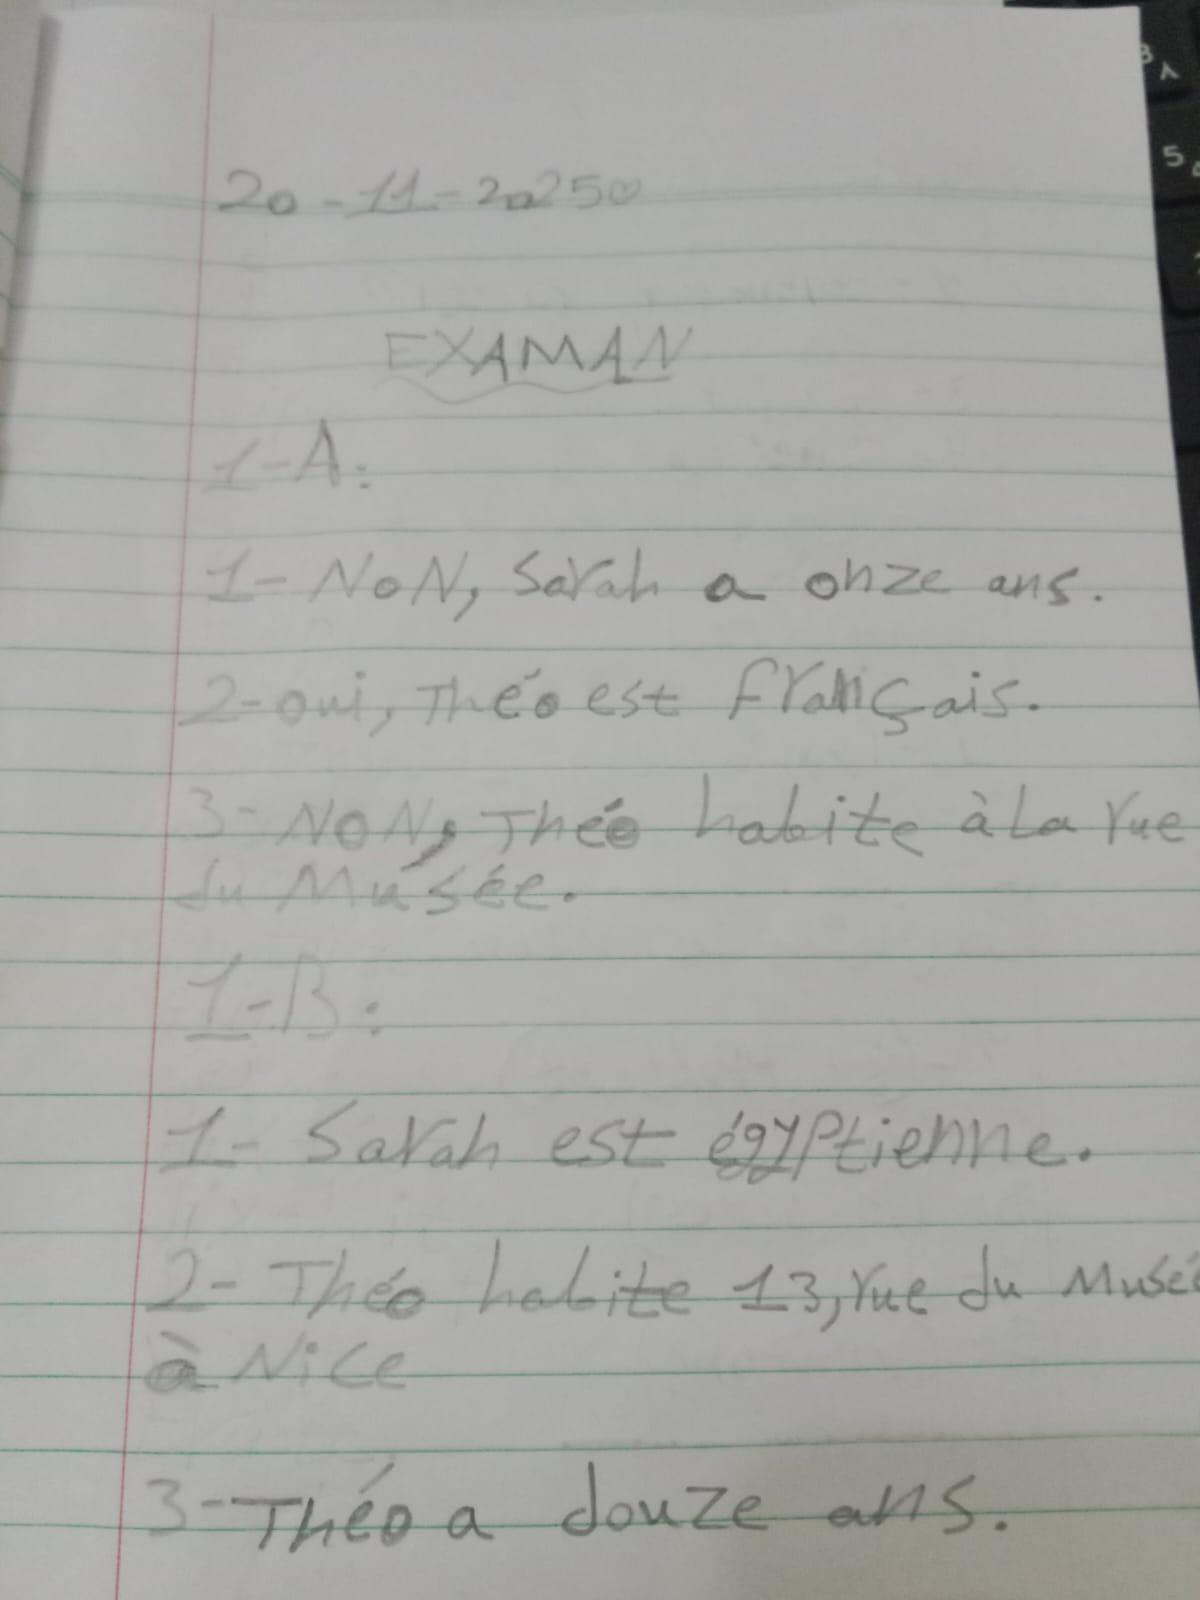 20-11-2025♡
EXAMAN
1-A:
1- NoN, Sarah a onze ans.
2-oui, Théo est Français.
3- NoN, Théo habite à La rue
du Musée.
1-B:
1- Sarah est égyptienne.
2- Théo habite 13, rue du Musée
à Nice
3-Théo a douze ans.